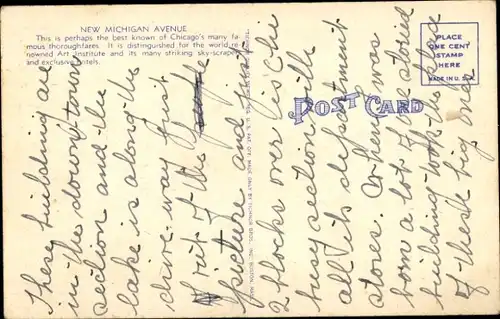 NEW MICHIGAN AVENUE
This is perhaps the best known of Chicago's many fa-
mous thoroughfares. It is distinguished for the world re-
nowned Art Institute and its many striking sky-scrapers
and exclusive hotels.
POST CARD
PLACE
ONE CENT
STAMP
HERE
MADE IN U. S. A.
These building are
in the down town
section and the
lake is along the
drive way just
out of the
picture and just
2 blocks over is the
busy section with
all its department
stores. When I was
born a lot of old stoned
building took the place
of these big ones